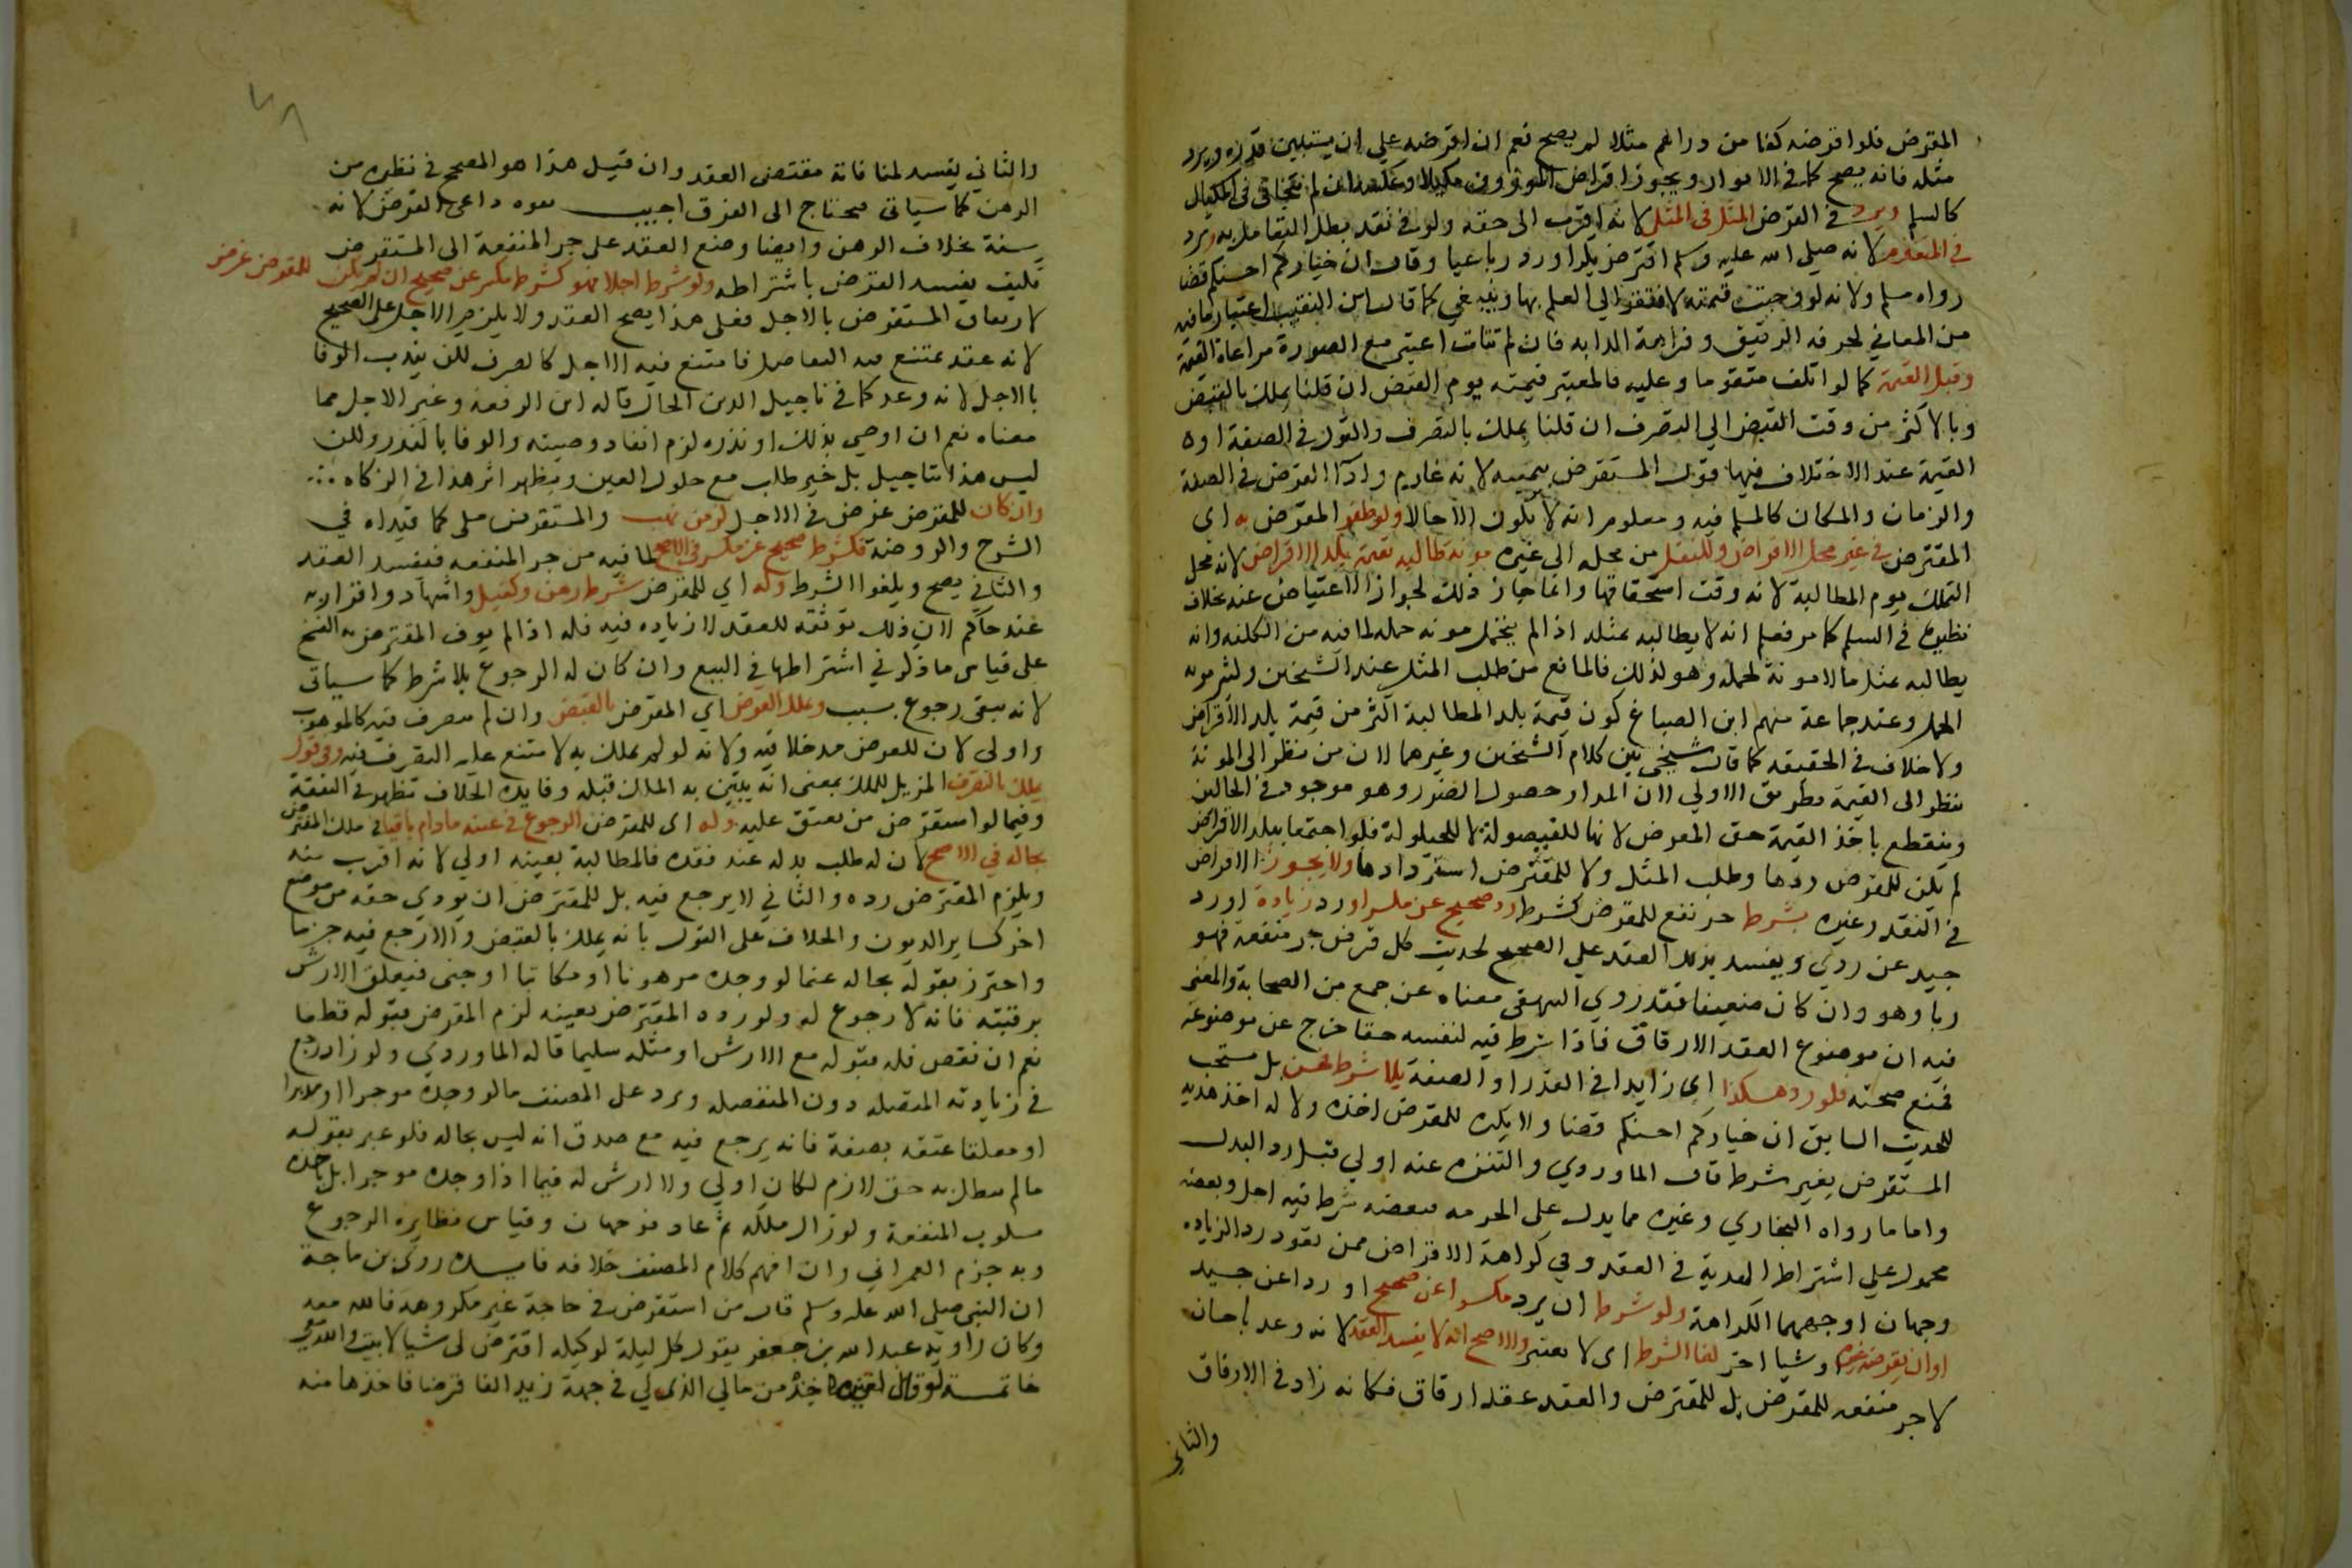 المقرض فلوا قرضه كفا من دراهم مثلا لم يصح نعم ان اقرضه علي ان يستبين قدره ويرد
مثله فانه يصح كما في الانوار ويجوز اقراض الموزون مكيلا وعكسه ان لم يتجافى في المكيال
كالسلم ويرد في القرض المثل في المثلي لانه اقرب الى حقه ولو في نقد بطل التعامل به ويرد
في المتقوم لانه صلى الله عليه وسلم اقترض بكرا ورد رباعيا وقال ان خياركم احسنكم قضا
رواه مسلم ولانه لو وجبت قيمته لافتقر الي العلم بها وينبغي كما قال ابن النقيب اعتبار ما فيه
من المعاني لحرفة الرقيق وفراهة الدابه فان لم تتات اعتبر مع الصورة مراعاة القيمة
وقيل القيمة كما لو اتلف متقوما وعليه فالمعتبر قيمته يوم القبض ان قلنا يملك بالقبض
وبالاكثر من وقت القبض الي التصرف ان قلنا يملك بالتصرف والقول في الصفة او
القيمة عند الاختلاف فيها قول المستقرض بيمينه لانه غارم وادا القرض في الصفة
والزمان والمكان كالمسلم فيه ومعلوم انه لا يكون الا حالا ولو ظفر المقرض به اى
المقترض في غير محل الاقراض وللنقل من محله الى غيره مونة طالبه بقيمة بلد الاقراض لانه محل
التملك يوم المطالبة لانه وقت استحقاقها وانما جاز ذلك لجواز الاعتياض عنه بخلاف
نظيره في السلم كما مر فعلم انه لا يطالبه بمثله اذا لم يتحمل مونه حمله لما فيه من الكلفه وانه
يطالبه بمثل ما لا مونة لحمله وهو لذلك فالمانع من طلب المثل عند الشيخين وكثير مونه
الحمل وعند جماعة منهم ابن الصباغ كون قيمة بلد المطالبة اكثر من قيمة بلد الاقراض
ولا خلاف في الحقيقه كما قال شيخي بين كلام الشيخين وغيرهما لان من نظر الى المونة
ينظر الى القيمة بطريق الاولي لان المدار حصول الضرر وهو موجود في الحالين
وينقطع باخذ القيمة حق المقرض لانها للفيصولة لا للحيلولة فلو اجتمعا ببلد الاقراض
لم يكن للمقرض ردها وطلب المثل ولا للمقترض استردادها ولا يجوز الاقراض
في النقد وغيره بشرط جر نفع للمقرض كشرط رد صحيح عن مكسر او رد زيادة او رد
جيد عن ردي ويفسد بذلك العقد علي الصحيح لحديث كل قرض جر منفعة فهو
ربا وهو وان كان ضعيفا فقد روي البيهقي معناه عن جمع من الصحابة والمعنى
فيه ان موضوع العقد الارفاق فاذا شرط فيه لنفسه حقا خرج عن موضوعه
فمنع صحته فلو رد هكذا اي زايدا في القدر او الصفة بلا شرط فحسن بل مستحب
للحديث السابق ان خياركم احسنكم قضا ولا يكره للمقرض اخذه ولا له اخذ هدية
المستقرض بغير شرط قال الماوردي والتنزه عنه اولي قبل رد البدل
واما ما رواه البخاري وغيره مما يدل على الحرمه فبعضه شرط فيه اجل وبعضه
محمول علي اشتراط الهدية في العقد وفي كراهة الاقراض ممن تعود رد الزياده
وجهان اوجههما الكراهة ولو شرط ان يرد مكسرا عن صحيح او رديا عن جيد
او ان يقرضه غيره او شيا اخر لغا الشرط اى لا يعتبر والاصح انه لا يفسد العقد لانه وعد باحسان
لا جر منفعه للمقرض بل للمقترض والعقد عقد ارفاق فكانه زاد في الارفاق
والثاني
والثاني يفسد لمنافاته مقتضى العقد وان قيل هذا هو المصحح في نظيره من
الرهن كما سياتي فيحتاج الى الفرق اجيب بقوة داعي القرض لانه
سنة بخلاف الرهن وايضا وضع العقد على جر المنفعة الى المستقرض
فكيف يفسد القرض باشتراطه ولو شرط اجلا فهو كشرط مكسر عن صحيح ان لم يكن للمقرض غرض
لارتفاق المستقرض بالاجل فعلى هذا يصح العقد ولا يلزم الاجل على الصحيح
لانه عقد يمتنع فيه التفاضل فامتنع فيه الاجل كالصرف لكن يندب الوفا
بالاجل لانه وعد كما في تاجيل الدين الحال قاله ابن الرفعة وغير الاجل مما
معناه نعم ان اوصي بذلك او نذره لزم انفاد وصيته والوفا بالنذر ولكن
ليس هذا تاجيل بل تاخير طلب مع حلول العين ويظهر اثر هذا في الزكاه
وان كان للمقرض غرض في الاجل كزمن نهب والمستقرض ملى كما قيداه في
الشرح والروضة فكشرط صحيح عن مكسر في الاصح لما فيه من جر المنفعه فيفسد العقد
والثاني يصح ويلغوا الشرط وله اي للمقرض شرط رهن وكفيل واشهاد واقرار به
عند حاكم لان ذلك توثقه للعقد لا زياده فيه فله اذا لم يوف المقترض به الفسخ
على قياس ما ذكر في اشتراطها في البيع وان كان له الرجوع بلا شرط كما سياتي
لانه يبقى رجوع بسبب ويملك القرض اي المقرض بالقبض وان لم يتصرف فيه كالموهوب
واولى لان للعوض مدخلا فيه ولانه لو لم يملك به لامتنع عليه التصرف فيه وفي قول
يملك بالتصرف المزيل للملك بمعنى انه يتبين به الملك قبله وفايدة الخلاف تظهر في النفقة
وفيما لو استقرض من يعتق عليه وله اى للمقرض الرجوع في عينه ما دام باقيا في ملك المقترض
بحاله في الاصح لان له طلب بدله عند فقده فالمطالبة بعينه اولي لانه اقرب منه
ويلزم المقترض رده والثاني لا يرجع فيه بل للمقترض ان يودي حقه من موضع
اخر كساير الديون والخلاف على القول بانه يملك بالقبض والا رجع فيه جزما
واحترز بقوله بحاله عما لو وجده مرهونا او مكاتبا او جنى فتعلق الارش
برقبته فانه لا رجوع له ولو رده المقترض بعينه لزم المقرض قبوله قطعا
نعم ان نقص فله قبوله مع الارش او مثله سليما قاله الماوردي ولو زاد رجع
في زيادته المتصله دون المنفصله ويرد على المصنف ما لو وجده موجرا او مدبرا
او معلقا عتقه بصفة فانه يرجع فيه مع صدق انه ليس بحاله فلو عبر بقوله
ما لم يبطل به حق لازم لكان اولي ولا ارش له فيما اذا وجده موجرا بل ياخذه
مسلوب المنفعة ولو زال ملكه ثم عاد فوجهان وقياس نظايره الرجوع
وبه جزم العمراني وان افهم كلام المصنف خلافه فايدة روى بن ماجة
ان النبي صلى الله عليه وسلم قال من استقرض في حاجة غير مكروهة فالله معه
وكان راويه عبد الله بن جعفر يقول كل ليلة لوكيله اقترض لى شيا لابيت والله معي
خاتمة لو قال لغيره خذ من مالي الذي لي في جهة زيد الفا قرضا فاخذها منه